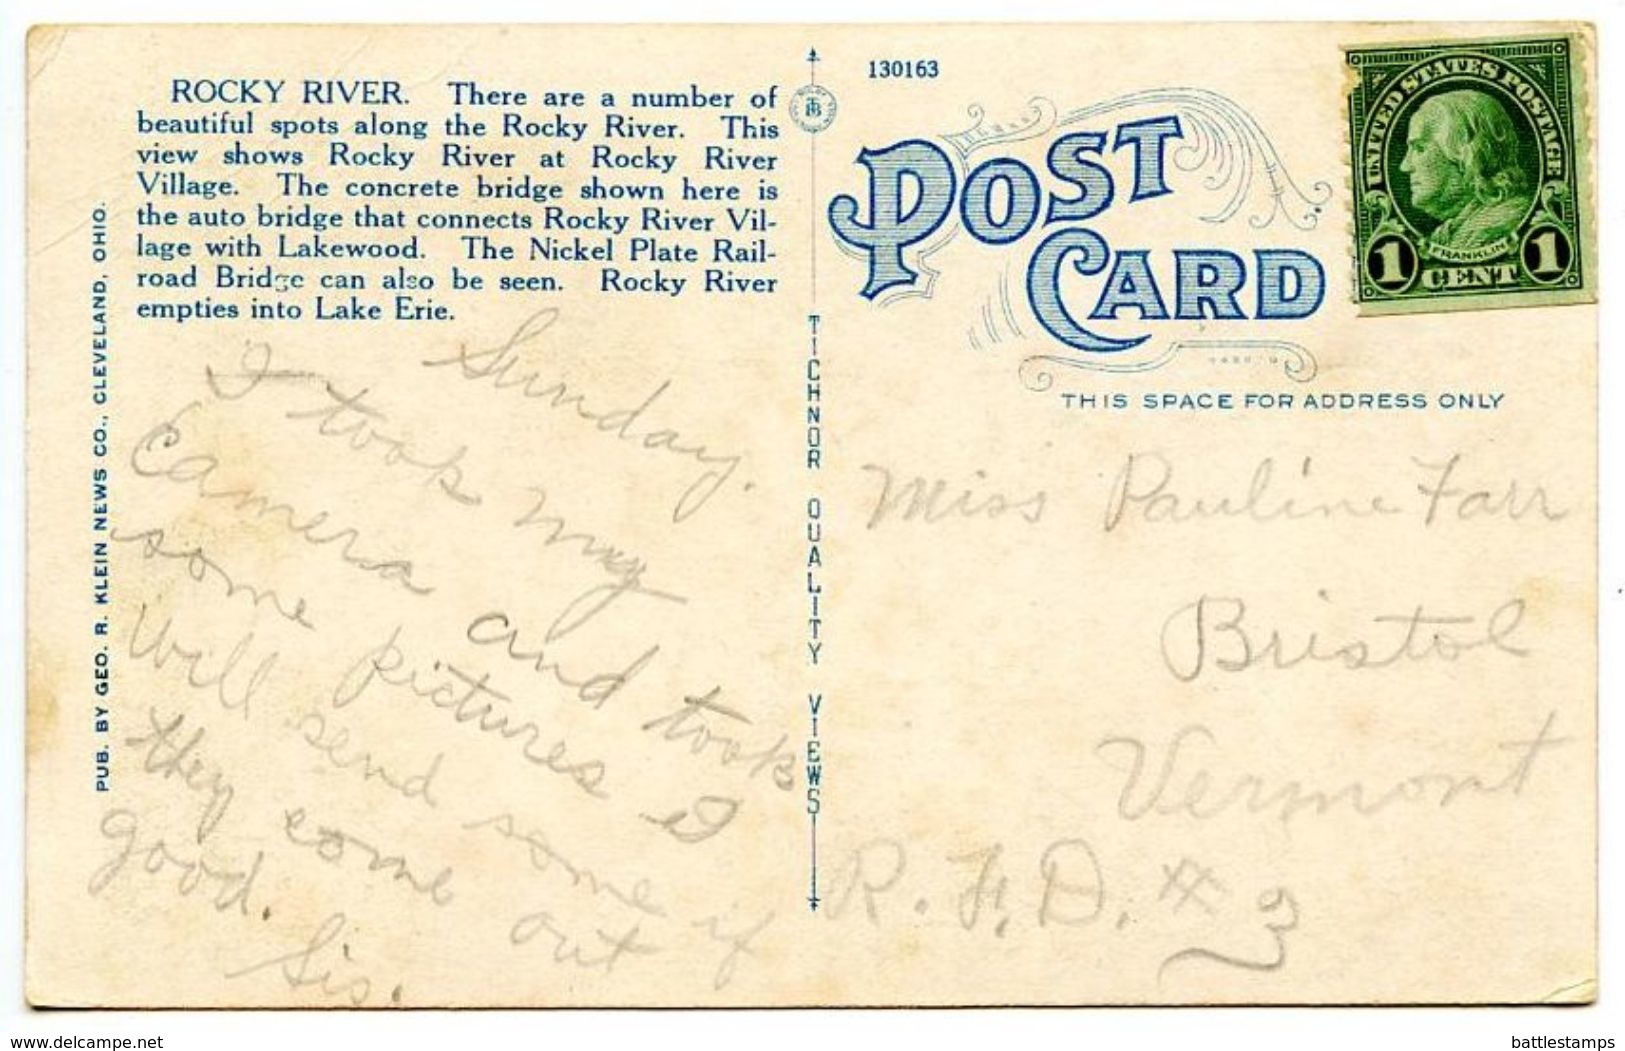 ROCKY RIVER. There are a number of
beautiful spots along the Rocky River. This
view shows Rocky River at Rocky River
Village. The concrete bridge shown here is
the auto bridge that connects Rocky River Vil-
lage with Lakewood. The Nickel Plate Rail-
road Bridge can also be seen. Rocky River
empties into Lake Erie.
PUB. BY GEO. R. KLEIN NEWS CO., CLEVELAND, OHIO.
Sunday.
I took my
Camera and took
some pictures I
Will send some if
they come out
good.
Sis.
TICHNOR QUALITY VIEWS
130163
POST
CARD
THIS SPACE FOR ADDRESS ONLY
UNITED STATES POSTAGE
FRANKLIN
1 CENT 1
Miss Pauline Farr
Bristol
Vermont
R.F.D. # 3
delcampe.net
battlestamps